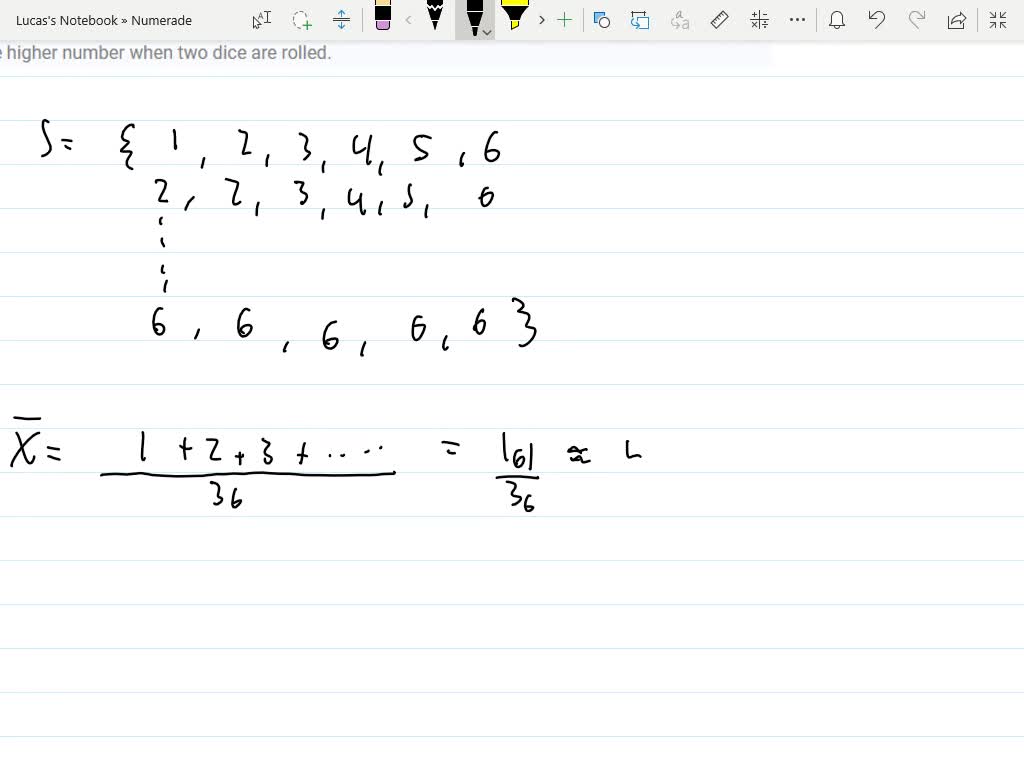 Lucas's Notebook » Numerade
e higher number when two dice are rolled.
S = { 1 , 2 , 3 , 4 , 5 , 6
2 , 2 , 3 , 4 , 5 , 6
6 , 6 , 6 , 6 , 6 }
X̄ = 1 + 2 + 3 + ..... / 36 = 161 / 36 ≈